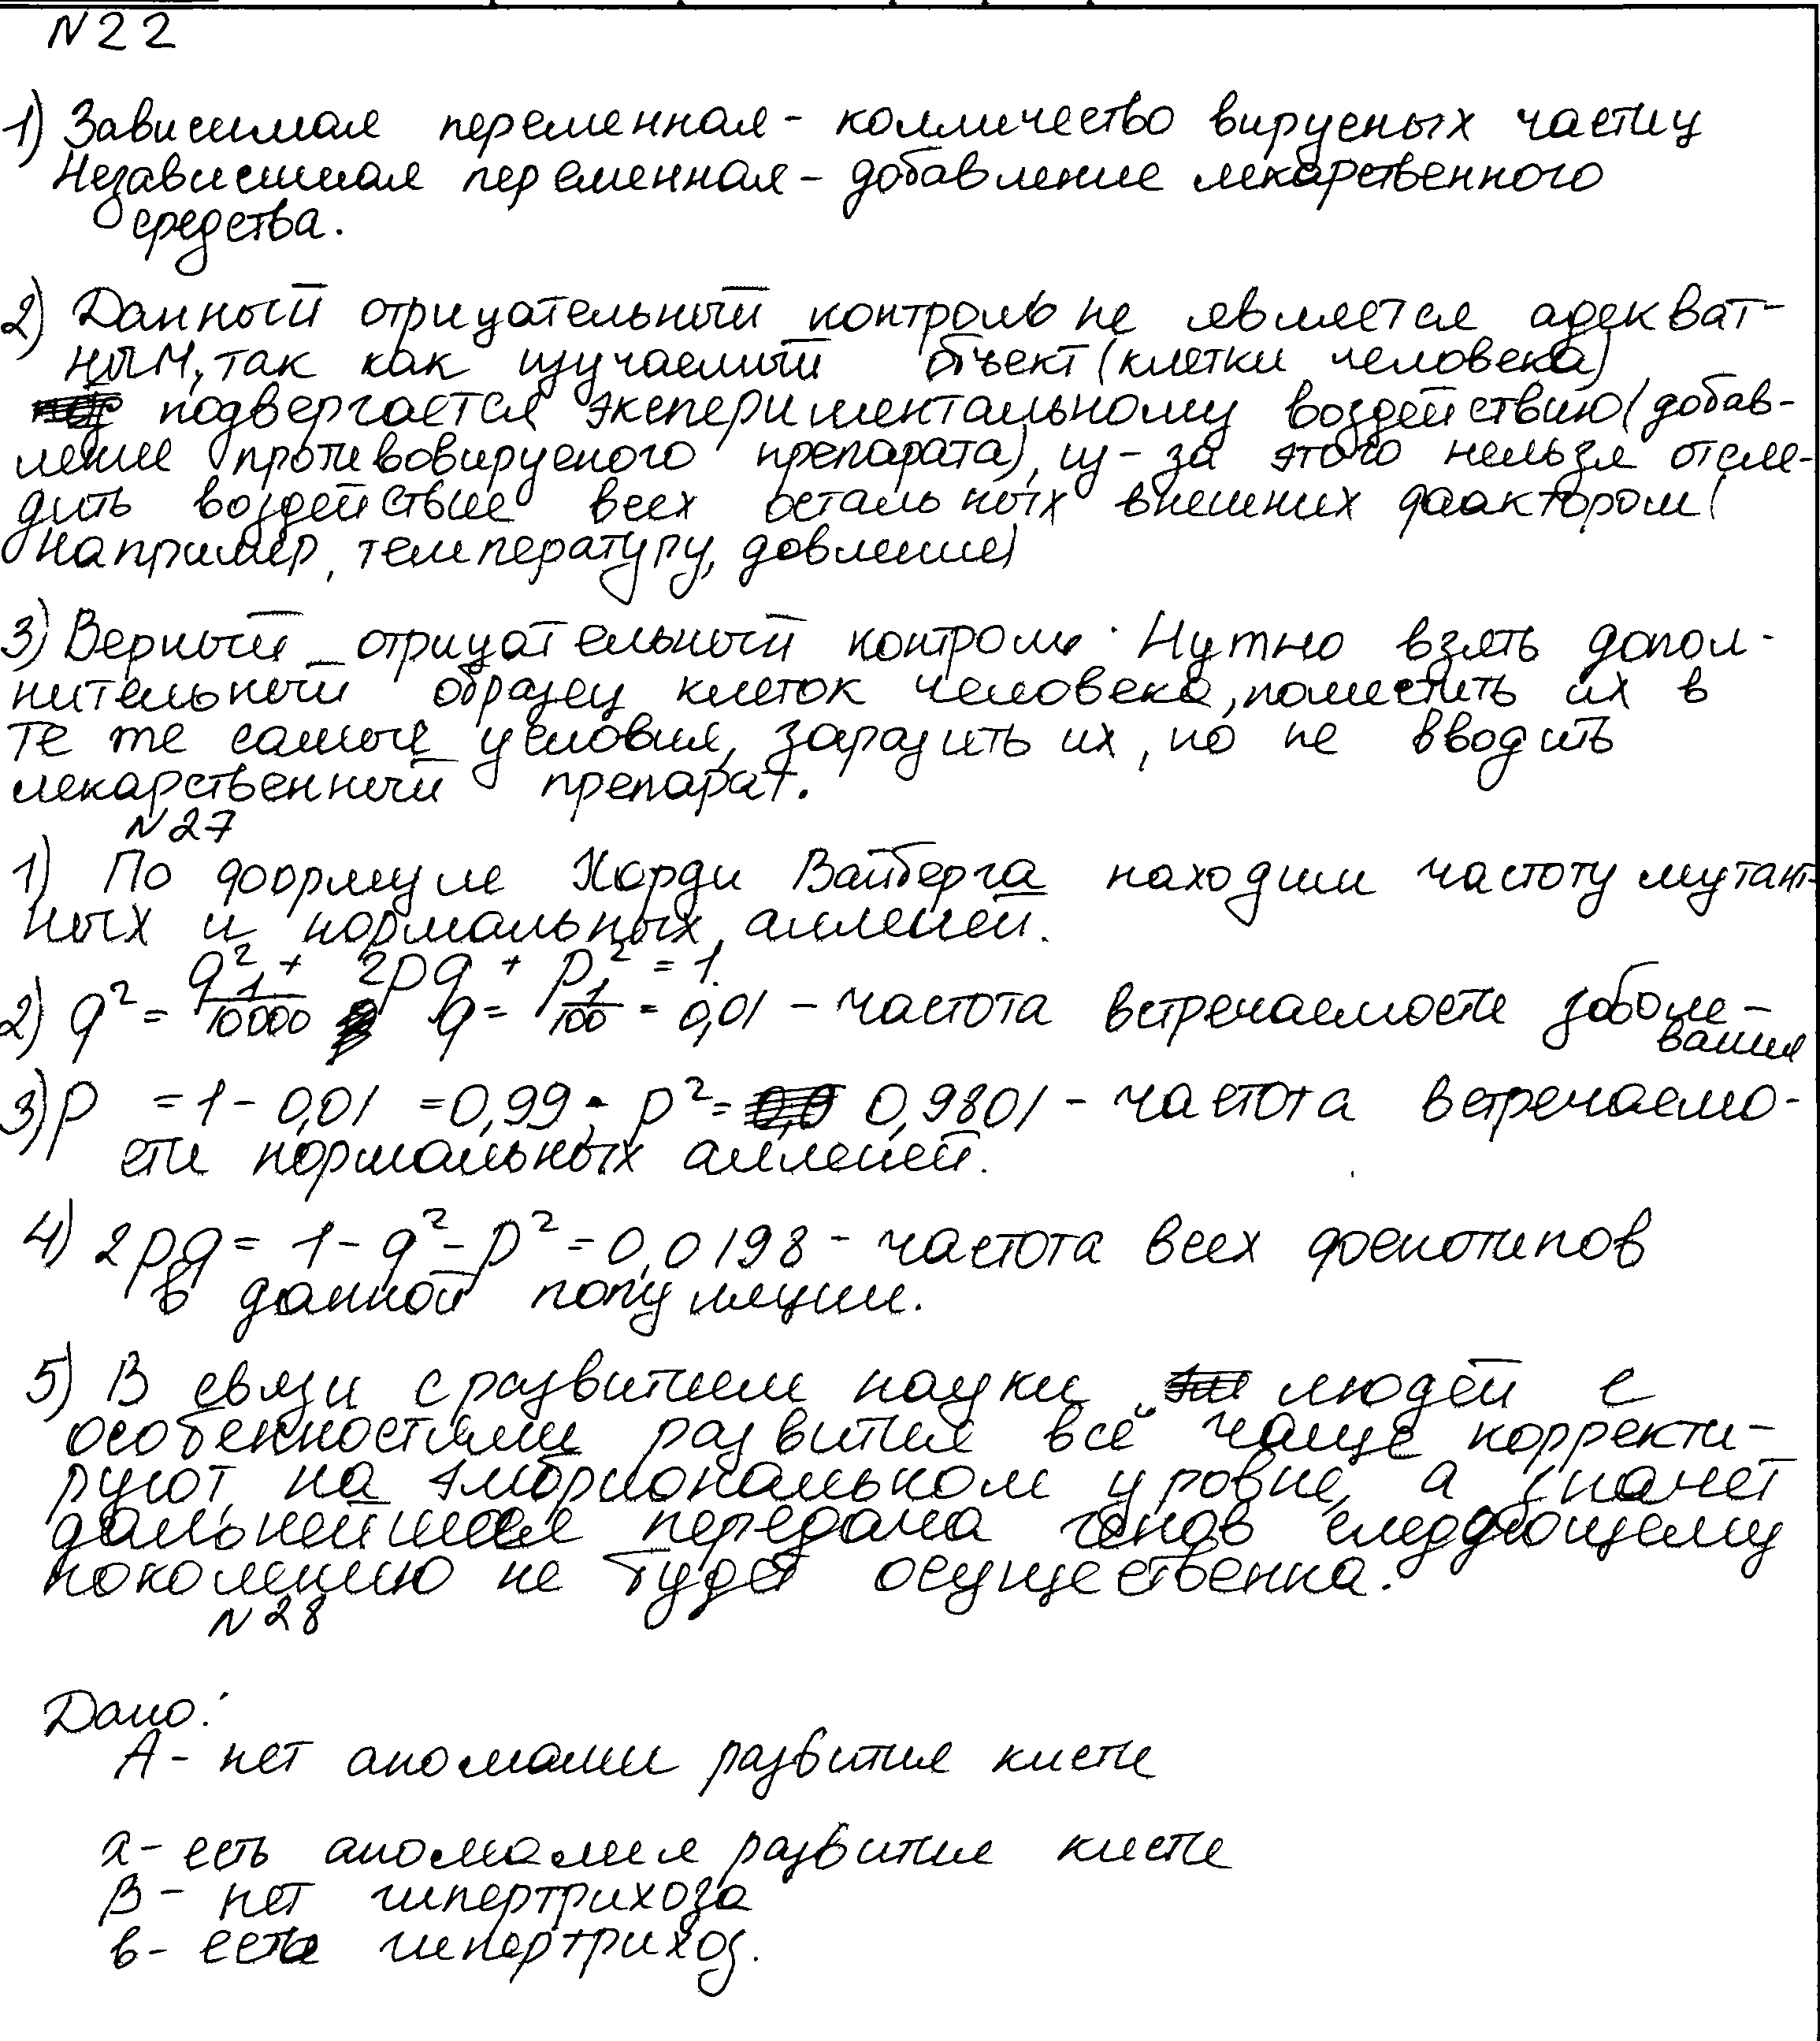 N22
1) Зависимая переменная - колличество вирусных частиц
Независимая переменная - добавление лекарственного
средства.
2) Данный отрицательный контроль не является адекват-
ным, так как изучаемый объект (клетки человека)
подвергается экспериментальному воздействию (добав-
ление противовирусного препарата), из-за этого нельзя отсле-
дить воздействие всех остальных внешних фактором (
например, температуру, давление)
3) Верный отрицательный контроль. Нужно взять допол-
нительный образец клеток человека, поместить их в
те же самые условия, заразить их, но не вводить
лекарственный препарат.
N27
1) По формуле Харди Вайберга находим частоту мутант-
ных и нормальных аллелей.
q² + 2pq + p² = 1.
2) q² = 1/10000 q = 1/100 = 0,01 - частота встречаемости заболе-
вания
3) p = 1 - 0,01 = 0,99. p² = 0,9801 - частота встречаемо-
сти нормальных аллелей.
4) 2pq = 1 - q² - p² = 0,0198 - частота всех фенотипов
в данной популяции.
5) В связи с развитием науки людей с
особенностями развития всё чаще корректи-
руют на эмбриональном уровне, а значет
дальнейшая передача генов следующему
поколению не будет осуществленна.
N28
Дано:
А - нет аномалии развития кисти
а - есть аномалия развития кисти
В - нет гипертрихоза
в - есть гипертрихоз.